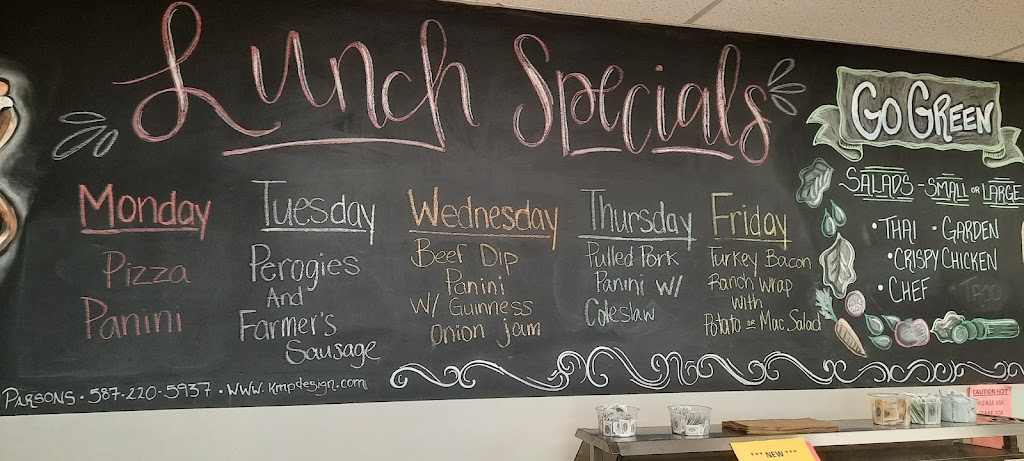 Lunch Specials
Monday
Pizza
Panini
Tuesday
Perogies
And
Farmer's
Sausage
Wednesday
Beef Dip
Panini
W/ Guinness
Onion Jam
Thursday
Pulled Pork
Panini W/
Coleslaw
Friday
Turkey Bacon
Ranch Wrap
with
Potato or Mac Salad
GO GREEN
SALADS - SMALL OR LARGE
• THAI • GARDEN
• CRISPY CHICKEN
• CHEF TACO
PARSONS • 587-220-5937 • www.kmpdesign.com
CAUTION HOT
PLEASE ASK
*** NEW ***